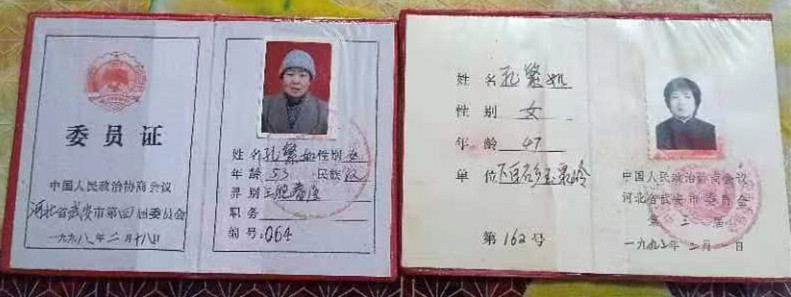 委员证
中国人民政治协商会议
河北省武安市第四届委员会
一九九八年二月十八日
姓名 孔繁如 性别 女
年龄 53 民族 汉
界别
职务
编号:064
姓名 孔繁如
性别 女
年龄 47
单位
第162号
中国人民政治协商会议
河北省武安市委员会
第三届
一九九三年二月 日